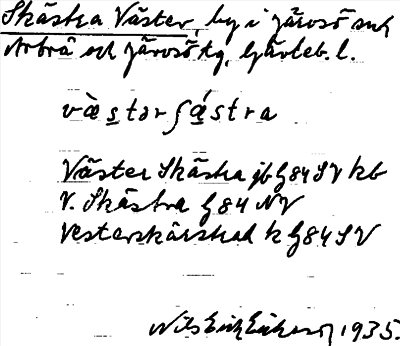 Skästra Väster, by i Järvsö sn,
Arbrå och Järvsö tg, Gävleb. l.
vä̀stər ʃä́stra
Väster Skästra jb G84SV kb
V. Skästra G84NV
Vesterskärstad k G84SV
1935.